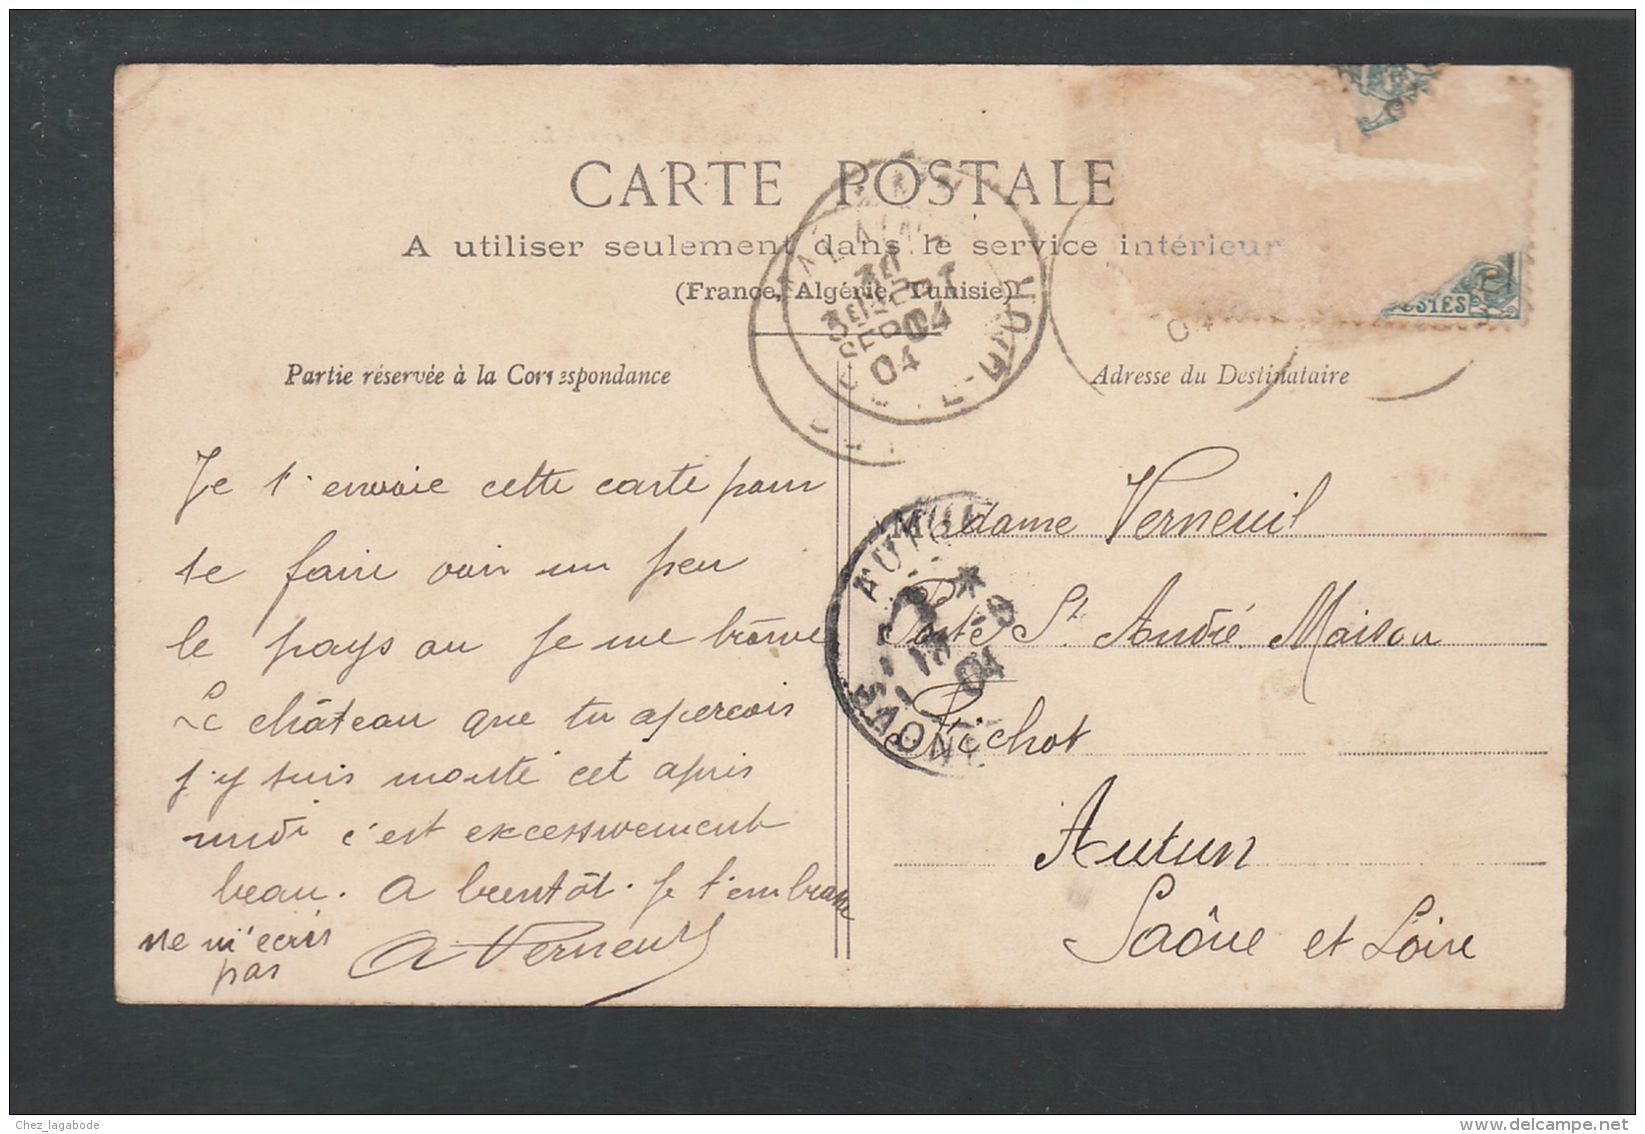 CARTE POSTALE
A utiliser seulement dans le service intérieur
(France, Algérie, Tunisie)
Partie réservée à la Correspondance
Adresse du Destinataire
Je t'envoie cette carte pour
te faire voir un peu
le pays ou je me trouve
Le château que tu apercois
j'y suis monté cet après
midi c'est excessivement
beau. A bientôt. Je t'embrasse
ne m'ecris
pas
A Verneuil
Madame Verneuil
Porte St André. Maison
Pichot
Autun
Saône et Loire
30
SEPT
04
EURE
AUTUN
04
POSTES
Chez_lagabode
www.delcampe.net